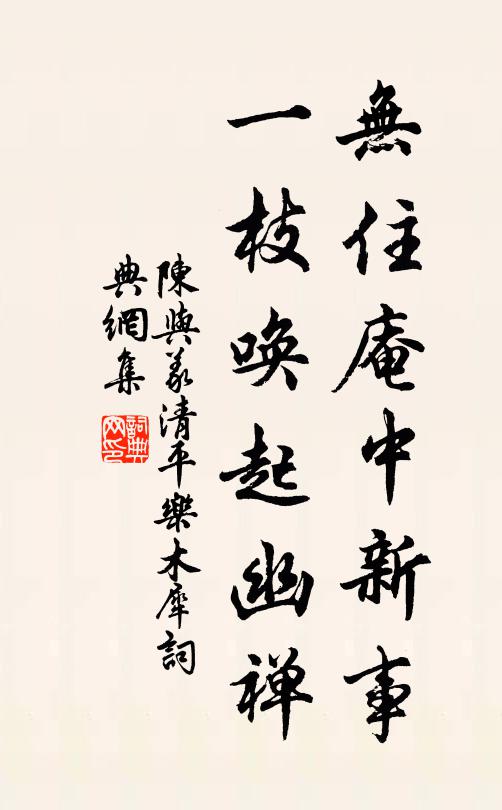 無住庵中新事
一枝唤起幽禅
陳與義清平樂木犀詞
典網集
詞典網印